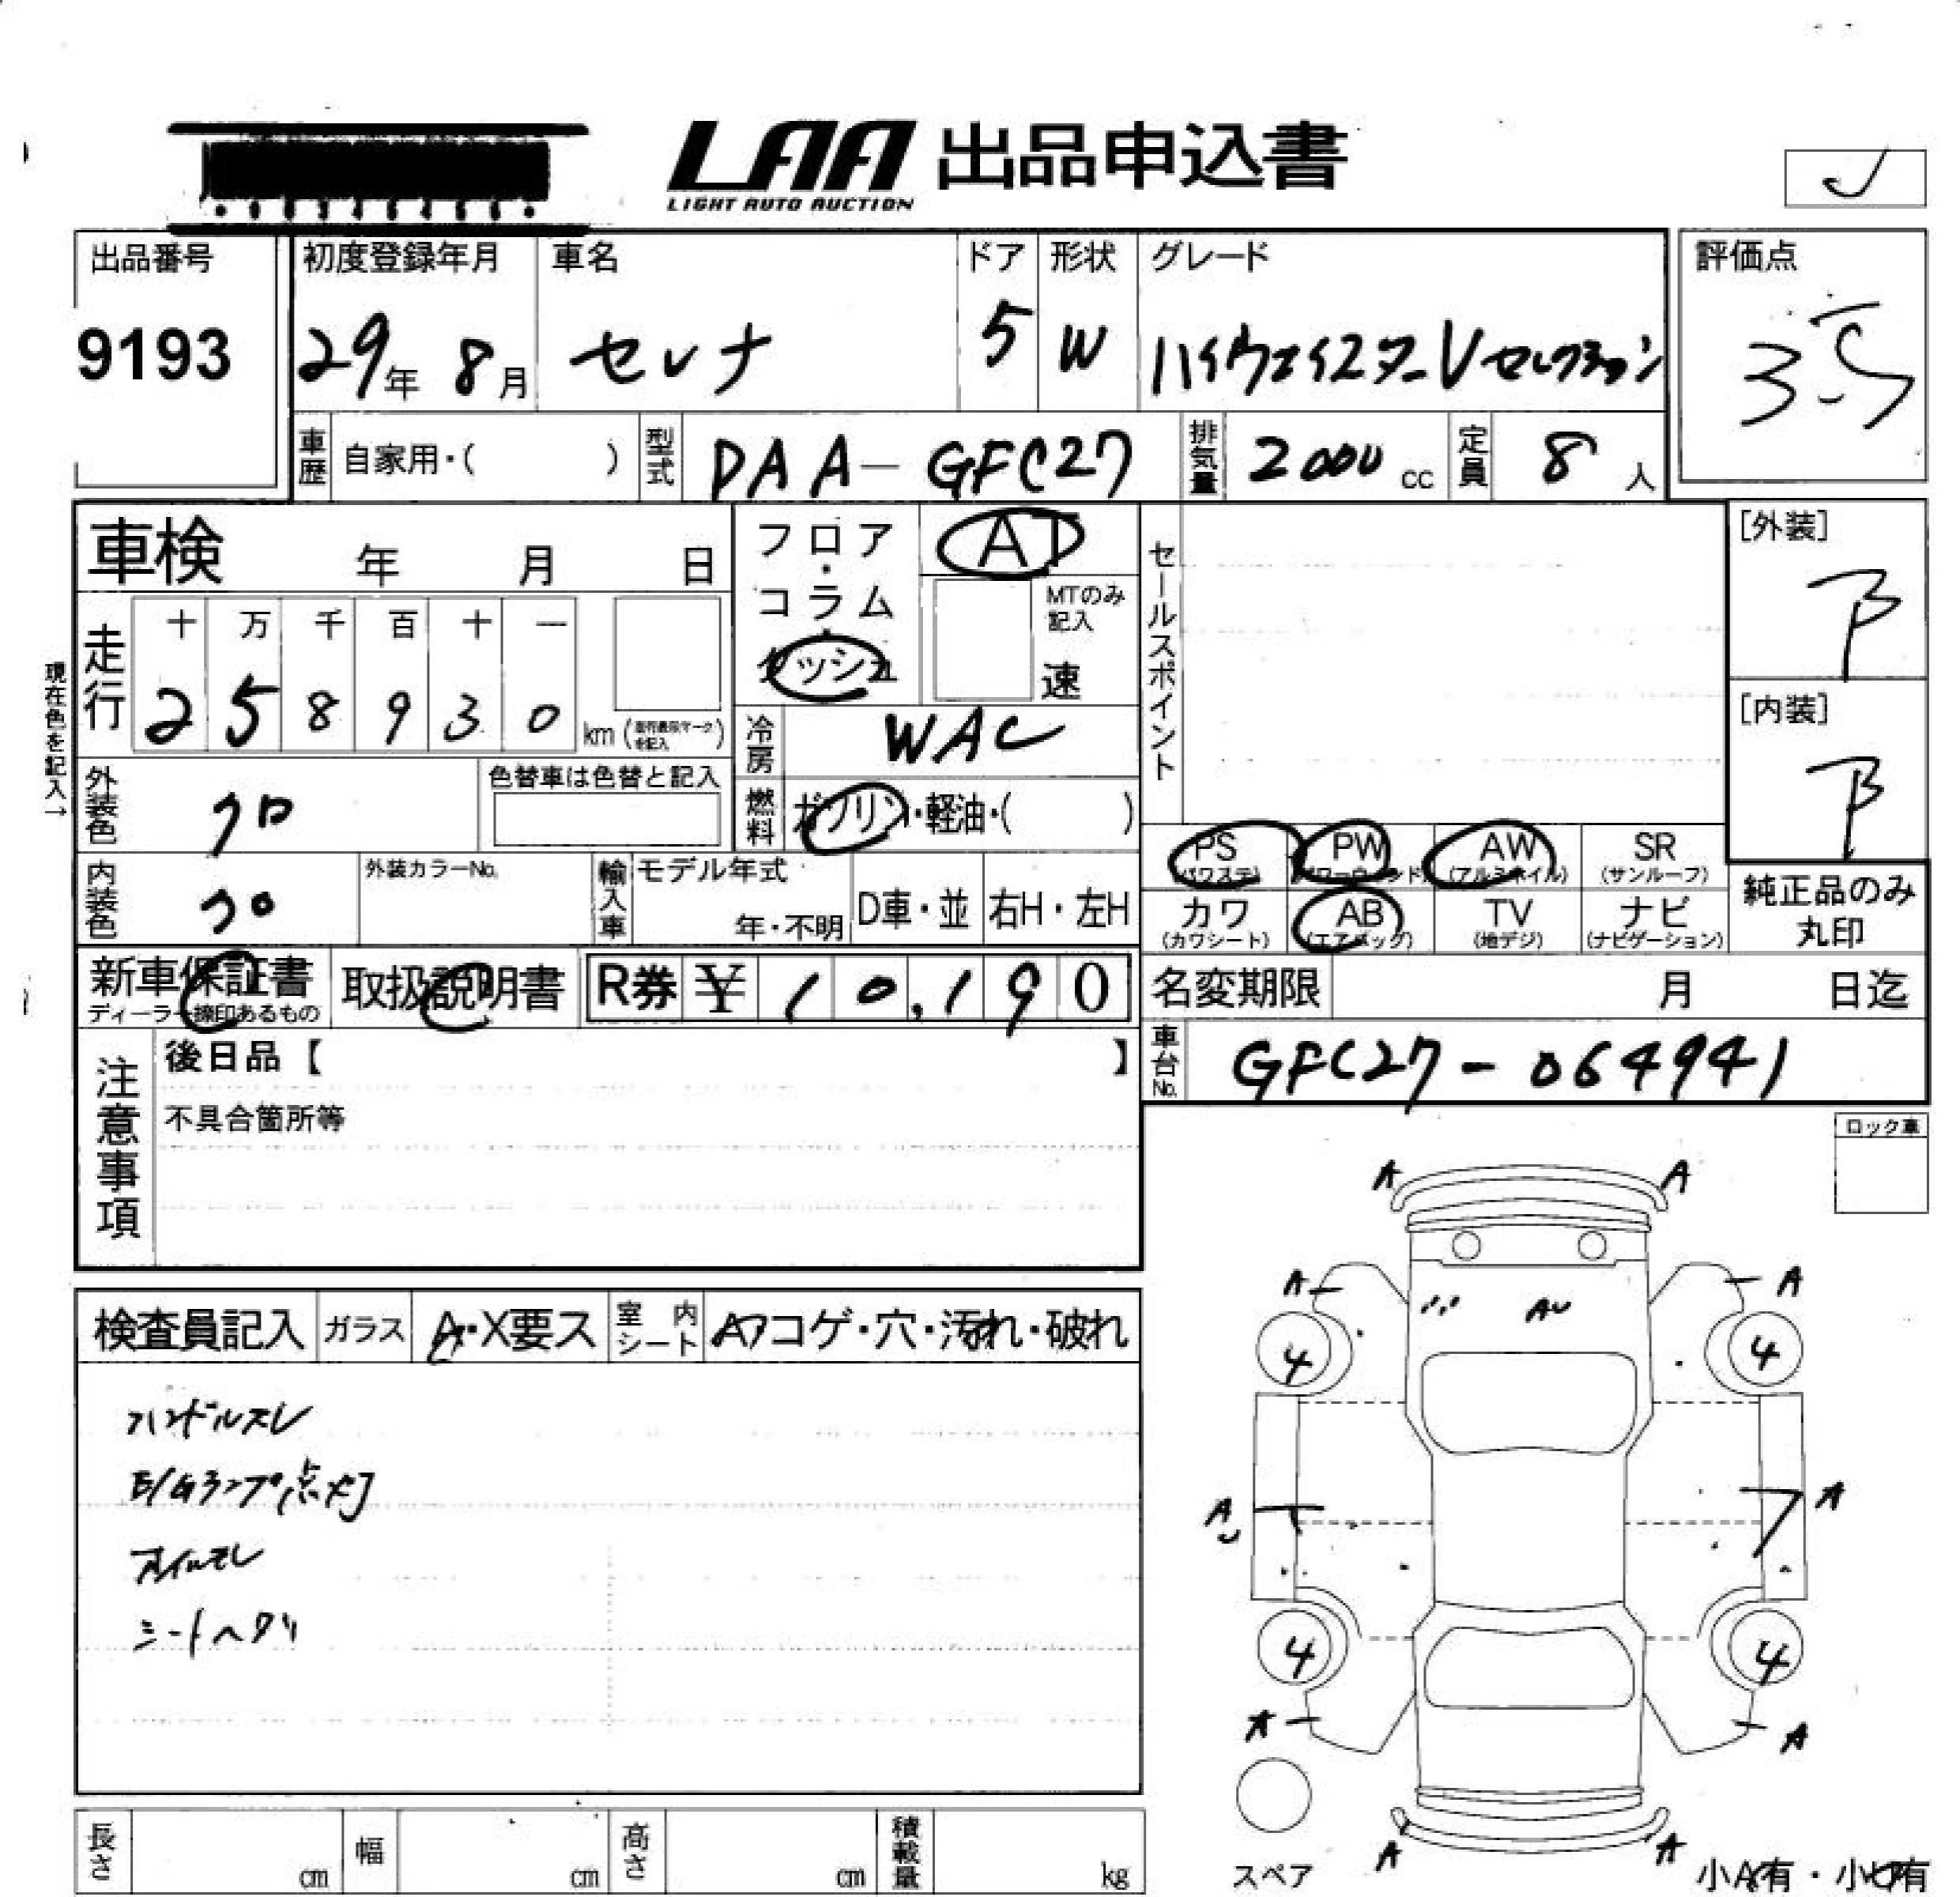 LAA 出品申込書
LIGHT AUTO AUCTION
出品番号 初度登録年月 車名 ドア 形状 グレード 評価点
9193 29年 8月 セレナ 5 W ハイウェイスターVセレクション 3.5
車歴 自家用・( ) 型式 DAA-GFC27 排気量 2000 cc 定員 8 人
車検 年 月 日 フロア・コラム・ダッシュ AT MTのみ記入 速 セールスポイント [外装] B
現在色を記入→
走行 十 万 千 百 十 一
2 5 8 9 3 0 km 冷房 WAC [内装] B
外装色 クロ 色替車は色替と記入 燃料 ガソリン・軽油・( )
PS PW AW SR
(パワステ) (パワーウィンドー) (アルミホイル) (サンルーフ)
内装色 クロ 外装カラーNo. 輸入車 モデル年式 年・不明 D車・並 右H・左H
カワ AB TV ナビ
(カワシート) (エアバッグ) (地デジ) (ナビゲーション)
純正品のみ丸印
新車保証書 取扱説明書 R券 ¥ 10,190 名変期限 月 日迄
ディーラー捺印あるもの
車台No. GFC27-064941
注意事項 後日品【 】
不具合箇所等
ロック車
検査員記入 ガラス A・X要ス 室内シート コゲ・穴・汚れ・破れ
ハンドルスレ
E/Gランプ点灯
オイルモレ
シートヘタリ
A A
A A
AU
4 4
A A
4 4
A A
A A
長さ cm 幅 cm 高さ cm 積載量 kg
スペア 小A有・小U有